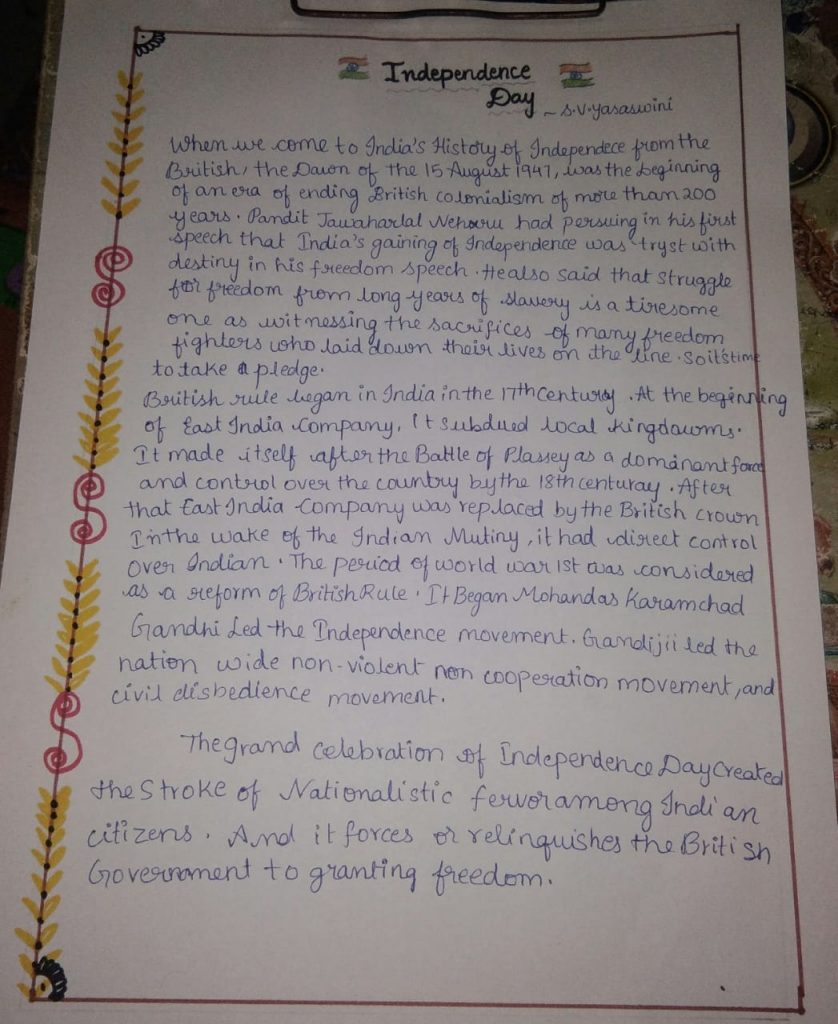 Independence
Day ~ S.V.Yasaswini
When we come to India's History of Independece from the
British, the Dawn of the 15 August 1947, was the beginning
of an era of ending British colonialism of more than 200
years. Pandit Jawaharlal Neharu had persuing in his first
speech that India's gaining of Independence was "tryst with
destiny in his freedom speech. He also said that struggle
for freedom from long years of slavery is a tiresome
one as witnessing the sacrifices of many freedom
fighters who laid down their lives on the line. So it's time
to take a pledge.
British rule began in India in the 17th Century. At the beginning
of East India Company, It subdued local kingdowms.
It made itself after the Battle of Plassey as a dominant force
and control over the country by the 18th centuray. After
that East India Company was replaced by the British crown
In the wake of the Indian Mutiny, it had direct control
over Indian. The period of world war 1st was considered
as a reform of British Rule. It Began Mohandas Karamchad
Gandhi Led the Independence movement. Gandijii led the
nation wide non-violent non cooperation movement, and
civil disbedience movement.
The grand celebration of Independence Day created
the Stroke of Nationalistic fervor among Indian
citizens. And it forces or relinquishes the British
Government to granting freedom.